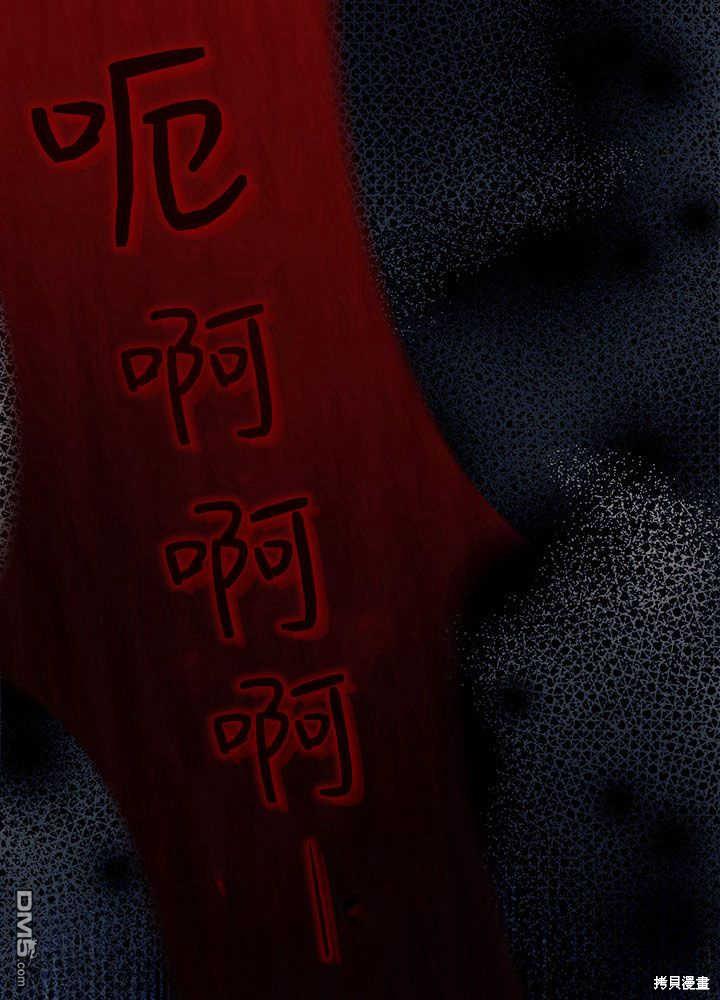 呃
啊
啊
啊
—
DM5.com
拷貝漫畫